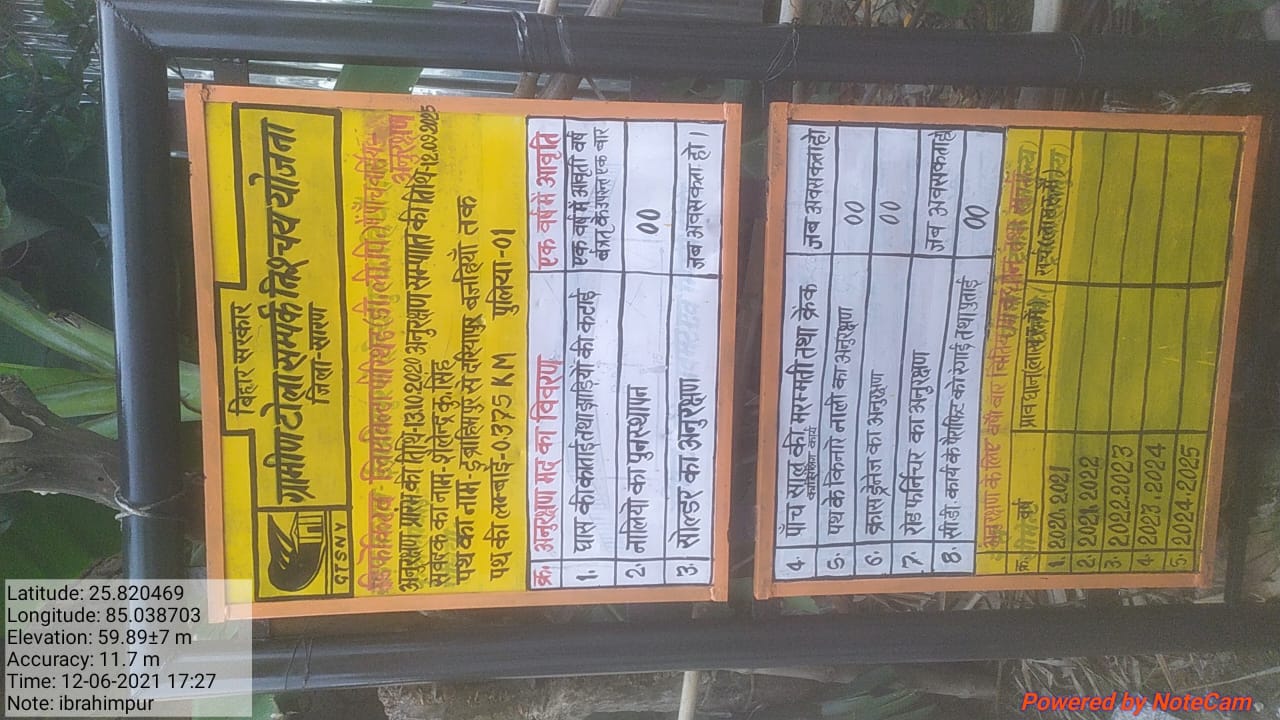 बिहार सरकार
ग्रामीण टोला सम्पर्क निश्चय योजना
जिला-सारण
GTSNY
अनुरक्षण
अनुरक्षण प्रारंभ की तिथि-13.10.2020 अनुरक्षण सम्पाति की तिथि-12.09.2025
सवेदक का नाम- शैलेन्द्र कु. सिंह
पथ का नाम- इब्राहिमपुर से दरियापुर बनहियाँ तक
पथ की लम्बाई-0.375 KM पुलिया-01
क्र. अनुरक्षण मद का विवरण एक वर्ष में आवृति
1. घास की कताई तथा झाड़ियों की कटाई एक वर्ष में आवृती वर्ष
के उपरान्त एक बार
2. नालियो का पुनस्थापन 00
3. सोल्डर का अनुरक्षण जब अवसकता हो।
4. पाँच साल की मरम्मती तथा क्रैक जब अवसकता हो
5. पथ के किनारे नाली का अनुरक्षण 00
6. क्रास ड्रेनेज का अनुरक्षण 00
7. रोड फर्निचर का अनुरक्षण जब अवसकता हो
8. सी.डी. कार्य के पेरापिट की रंगाई तथा पुताई 00
अनुरक्षण के लिए
क्र. वर्ष प्रावधान
1. 2020.2021
2. 2021.2022
3. 2022.2023
4. 2023.2024
5. 2024.2025
Latitude: 25.820469
Longitude: 85.038703
Elevation: 59.89±7 m
Accuracy: 11.7 m
Time: 12-06-2021 17:27
Note: ibrahimpur
Powered by NoteCam